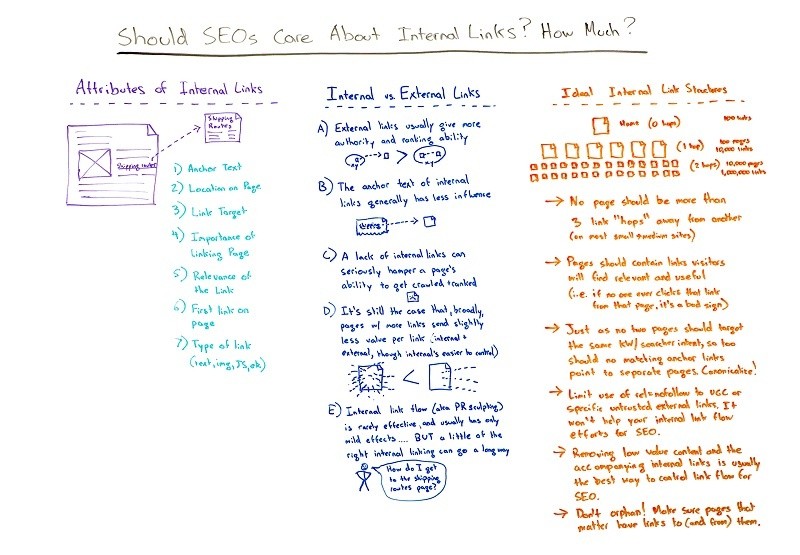 Should SEOs Care About Internal Links? How Much?
Attributes of Internal Links
Shipping
Routes
shipping routes
1) Anchor Text
2) Location on Page
3) Link Target
4) Importance of
Linking Page
5) Relevance of
the Link
6) First link on
page
7) Type of link
(text, img, JS, etc)
Internal vs. External Links
A) External links usually give more
authority and ranking ability
>
B) The anchor text of internal
links generally has less influence
C) A lack of internal links can
seriously hamper a page's
ability to get crawled + ranked
D) It's still the case that, broadly,
pages w/ more links send slightly
less value per link (internal +
external, though internal's easier to control)
<
E) Internal link flow (aka PR sculpting)
is rarely effective, and usually has only
mild effects.... BUT a little of the
right internal linking can go a long way
How do I get
to the shipping
routes page?
Ideal Internal Link Structures
Home (0 hops) 100 links
(1 hop) 100 pages
10,000 links
(2 hops) 10,000 pages
1,000,000 links
→ No page should be more than
3 link "hops" away from another
(on most small + medium sites)
→ Pages should contain links visitors
will find relevant and useful
(i.e. if no one ever clicks that link
from that page, it's a bad sign)
→ Just as no two pages should target
the same KW/searcher intent, so too
should no matching anchor links
point to separate pages. Canonicalize!
→ Limit use of rel=nofollow to UGC or
specific untrusted external links. It
won't help your internal link flow
efforts for SEO.
→ Removing low value content and the
accompanying internal links is usually
the best way to control link flow for
SEO.
→ Don't orphan! Make sure pages that
matter have links to (and from) them.